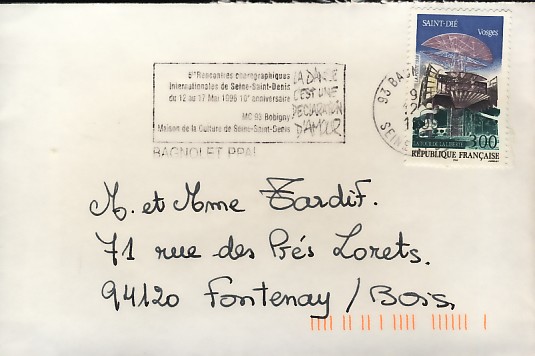 SAINT-DIÉ
Vosges
5es Rencontres chorégraphiques
Internationales de Seine-Saint-Denis
du 12 au 17 Mai 1996 10e anniversaire
MC 93 Bobigny
Maison de la Culture de Seine-Saint-Denis
LA DANSE
C'EST UNE
DECLARATION
D'AMOUR
BAGNOLET PPAL
93 BAGN
SEINE
LA TOUR DE LA LIBERTÉ
3,00
RÉPUBLIQUE FRANÇAISE
M. et Mme Tardif.
71 rue des Prés Lorets.
94120 Fontenay / Bois.